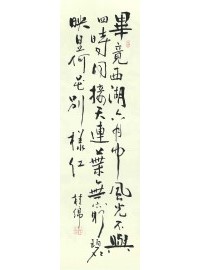 畢竟西湖六月中風光不與
四時同接天連葉無窮碧
映日荷花別樣紅